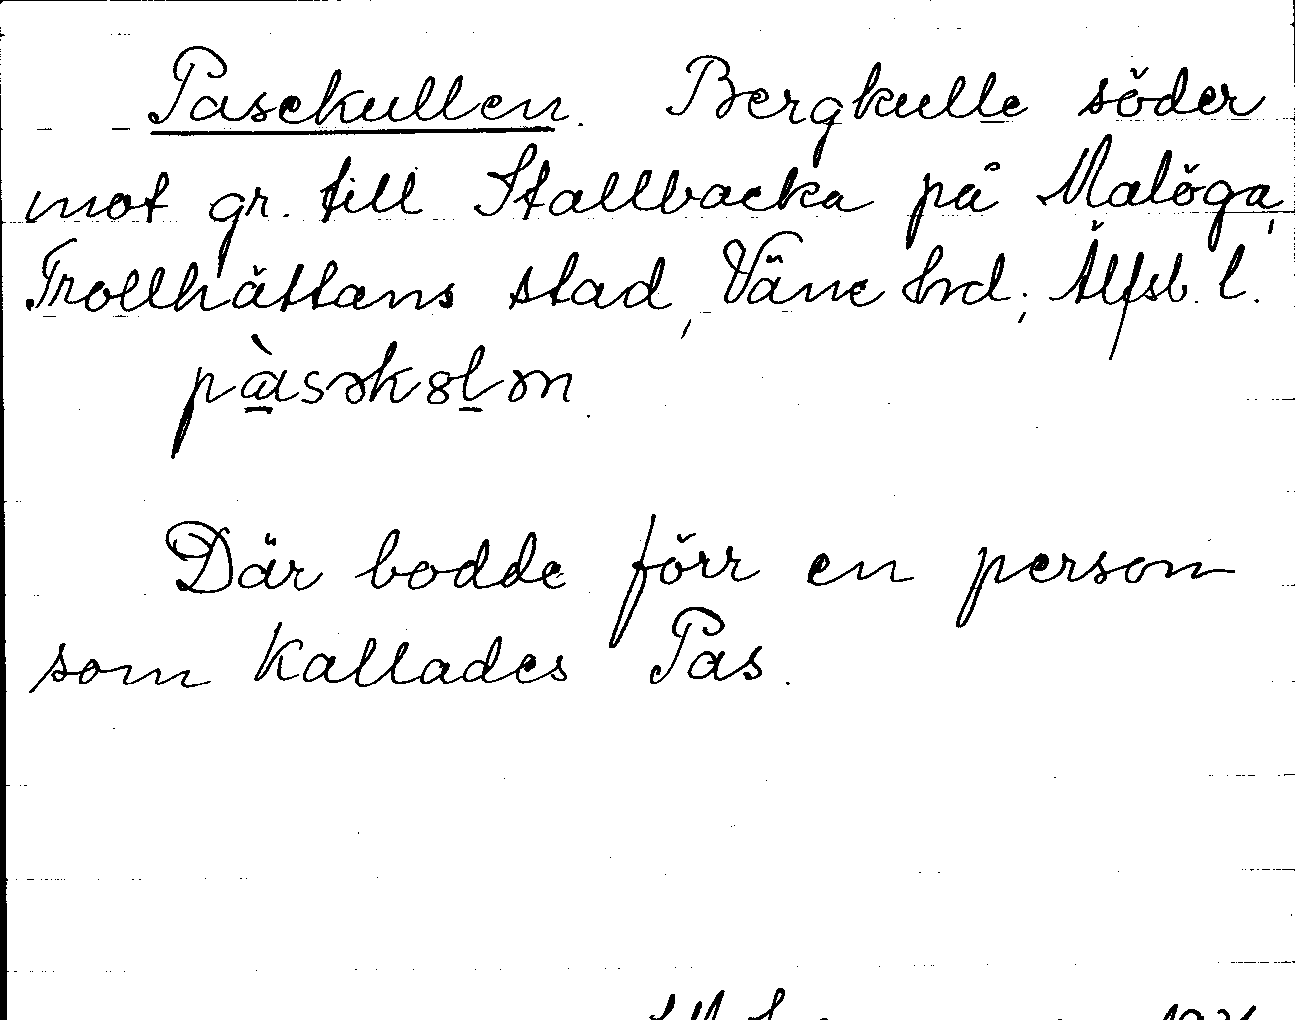 Pasekullen. Bergkulle söder
mot gr. till Stallbacka på Malöga,
Trollhättans stad, Väne hrd; Älfsb. l.
pàsəkɞlən.
Där bodde förr en person
som kallades Pas.